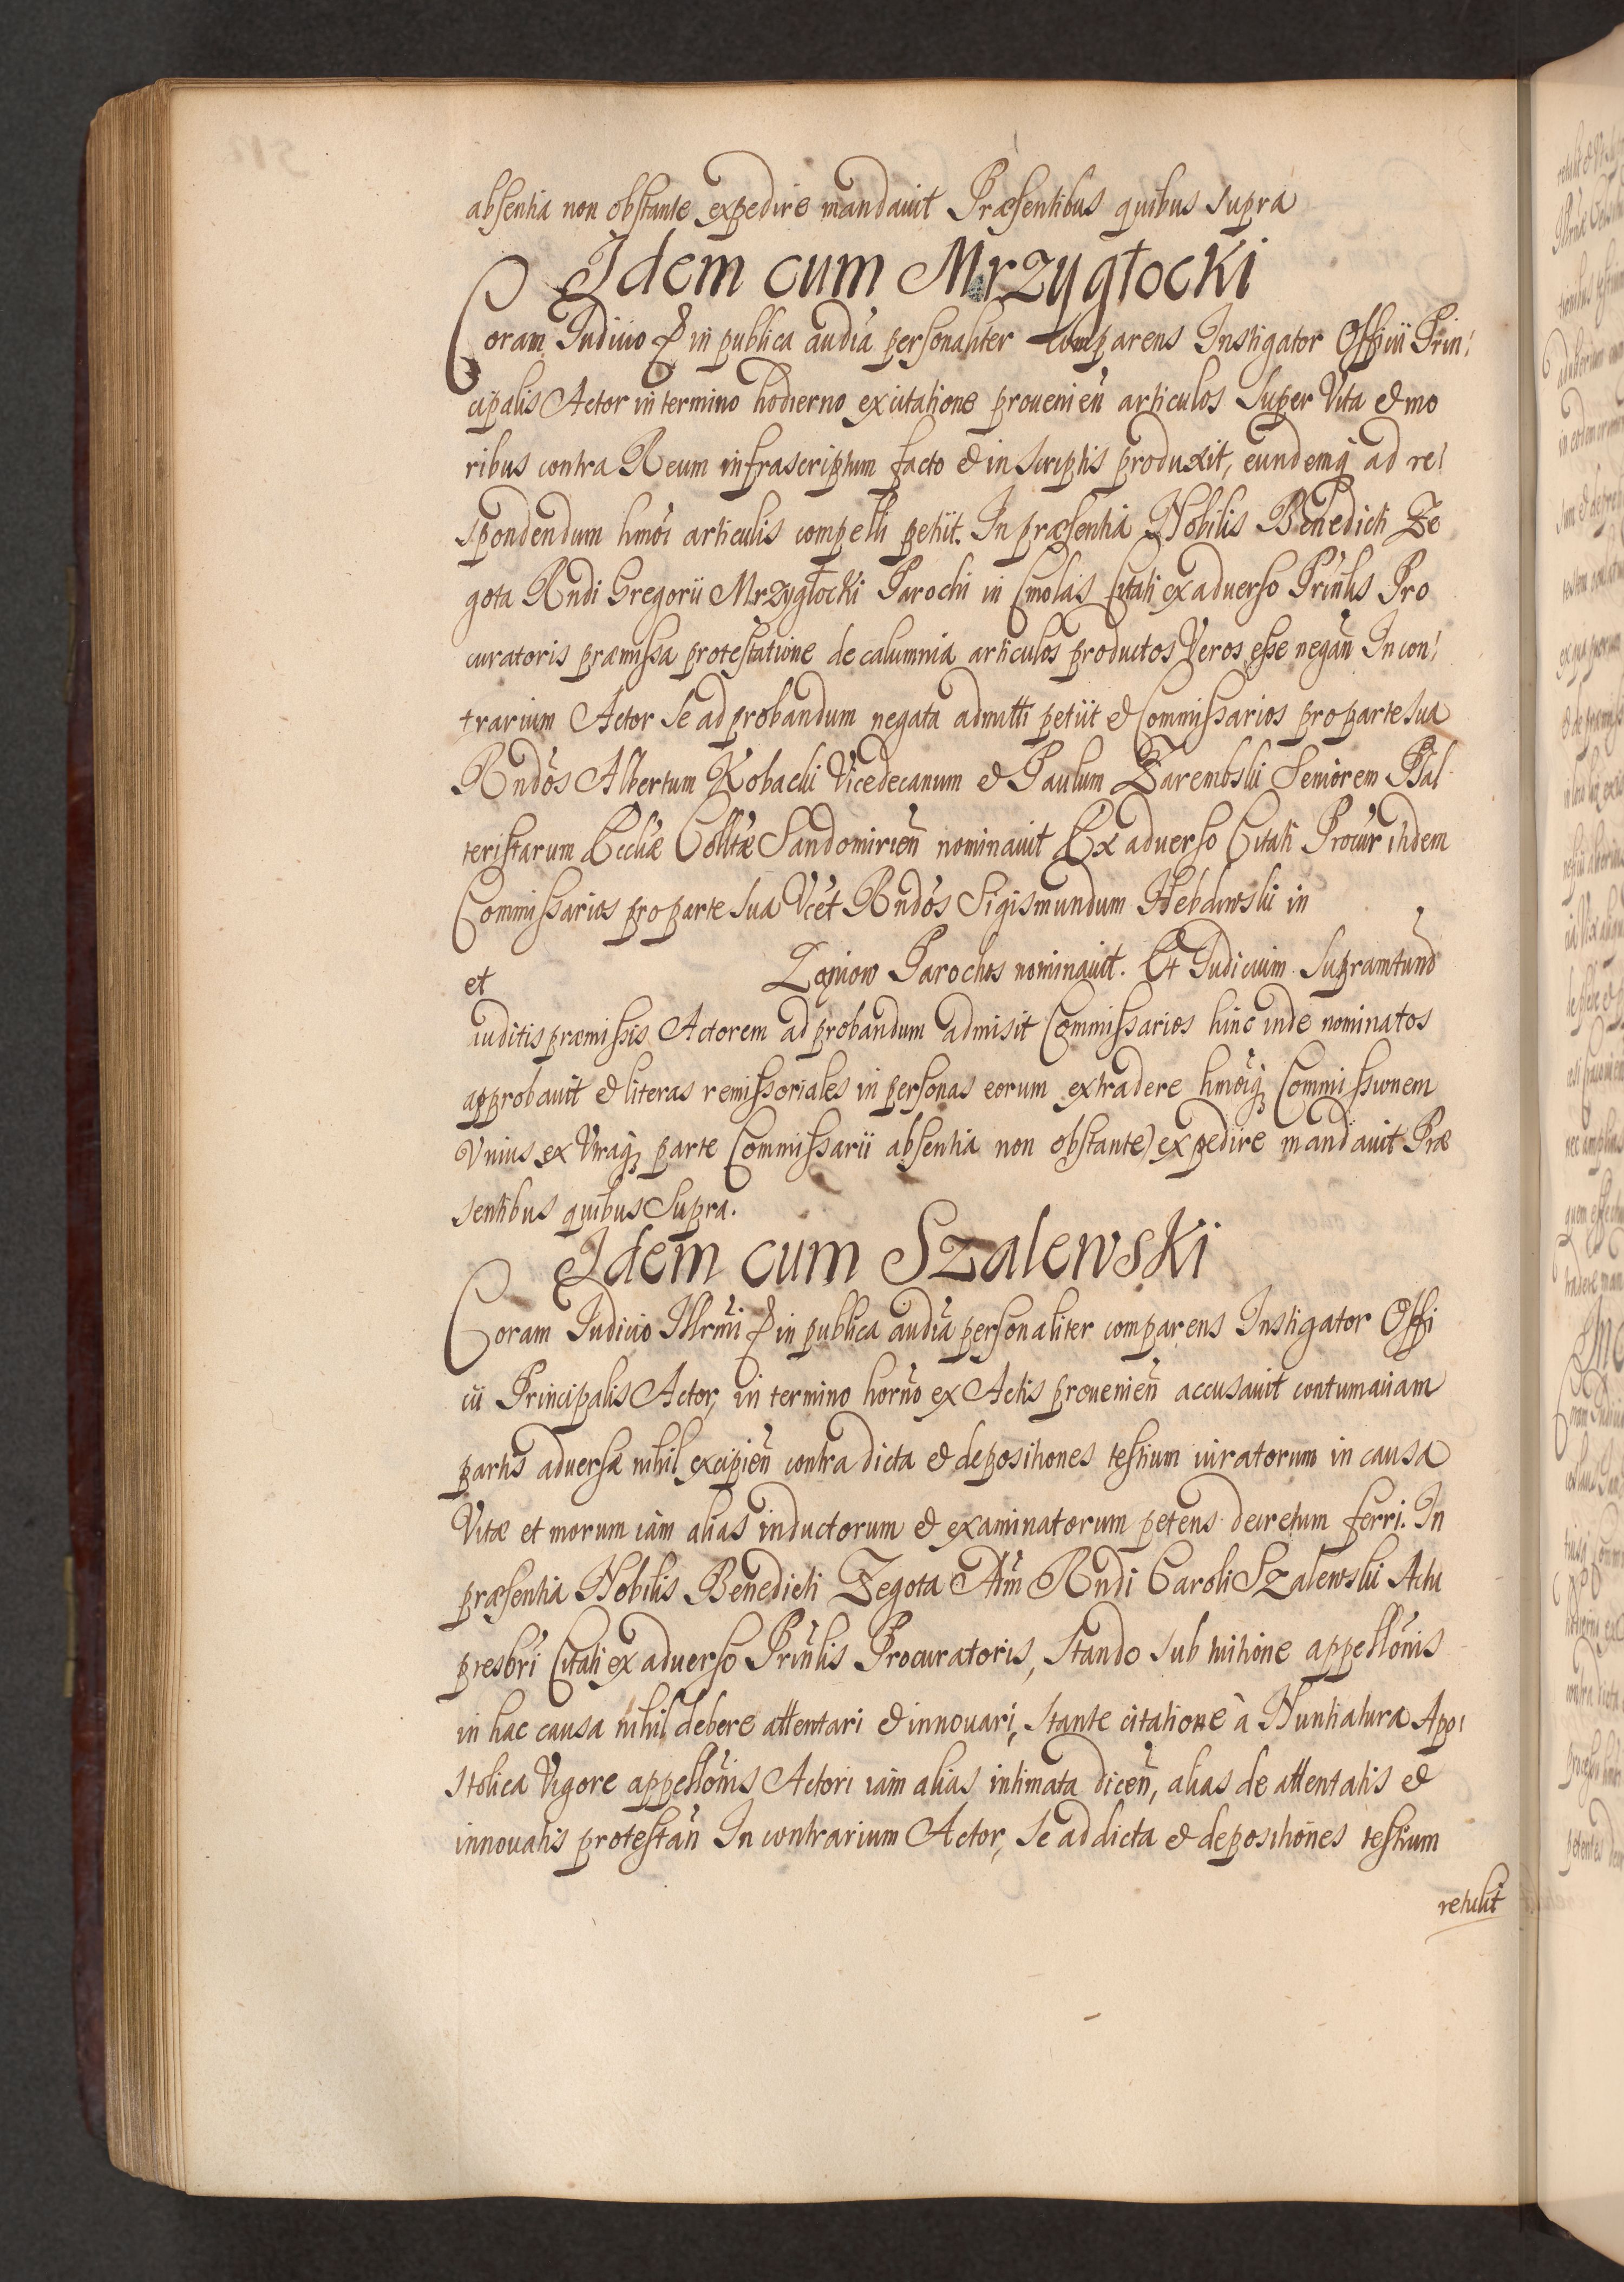 absentia non obstante expedire mandauit Præsentibus quibus supra
Idem cum Mrzygłocki
Coram Iudicio & in publica audia personaliter comparens Instigator Officii Prin
cipalis Actor in termino hodierno ex citatione prouenien articulos super Vita & mo
ribus contra Reum infrascriptum facto & in scriptis produxit, eundemq ad re
spondendum hmoi articulis compelli petiit. In præsentia Nobilis Benedicti Ze
gota Rndi Gregorii Mrzygłocki Parochi in Cmolas Citati ex aduerso Prinlis Pro
curatoris præmissa protestatione de calumnia articulos productos Veros esse negan In con
trarium Actor se ad probandum negata admitti petiit & Commissarios pro parte sua
Rndos Albertum Kobacki Vicedecanum & Paulum Zarembski Seniorem Psal
teristarum Eccliæ Colltæ Sandomirien nominauit Ex aduerso Citati Procur itidem
Commissarios pro parte sua Vcet Rndos Sigismundum Hebdowski in
et Łoniow Parochos nominauit. Et Iudicium Supramtund
auditis præmissis Actorem ad probandum admisit Commissarios hinc inde nominatos
approbauit & literas remissoriales in personas eorum extradere hmoiq Commissionem
Vnius ex Vtraq parte Commissarii absentia non obstante expedire mandauit Præ
sentibus quibus Supra.
Idem cum Szalewski
Coram Iudicio Illrmi & in publica audia personaliter comparens Instigator Offi
cii Principalis Actor, in termino horno ex Actis prouenien accusauit contumaciam
partis aduersæ nihil excipien contra dicta & depositiones testium iuratorum in causa
Vitæ et morum iam alias inductorum & examinatorum petens decretum ferri. In
præsentia Nobilis Benedicti Zegota Adm Rndi Caroli Szalewski Actu
presbri Citati ex aduerso Prinlis Procuratoris, stando sub tuitione appellonis
in hac causa nihil debere attentari & innouari, stante citatione à Nuntiatura Apo
stolica Vigore appellonis Actori iam alias intimata dicen, alias de attentatis &
innouatis protestan In contrarium Actor, se ad dicta & depositiones testium
retulit